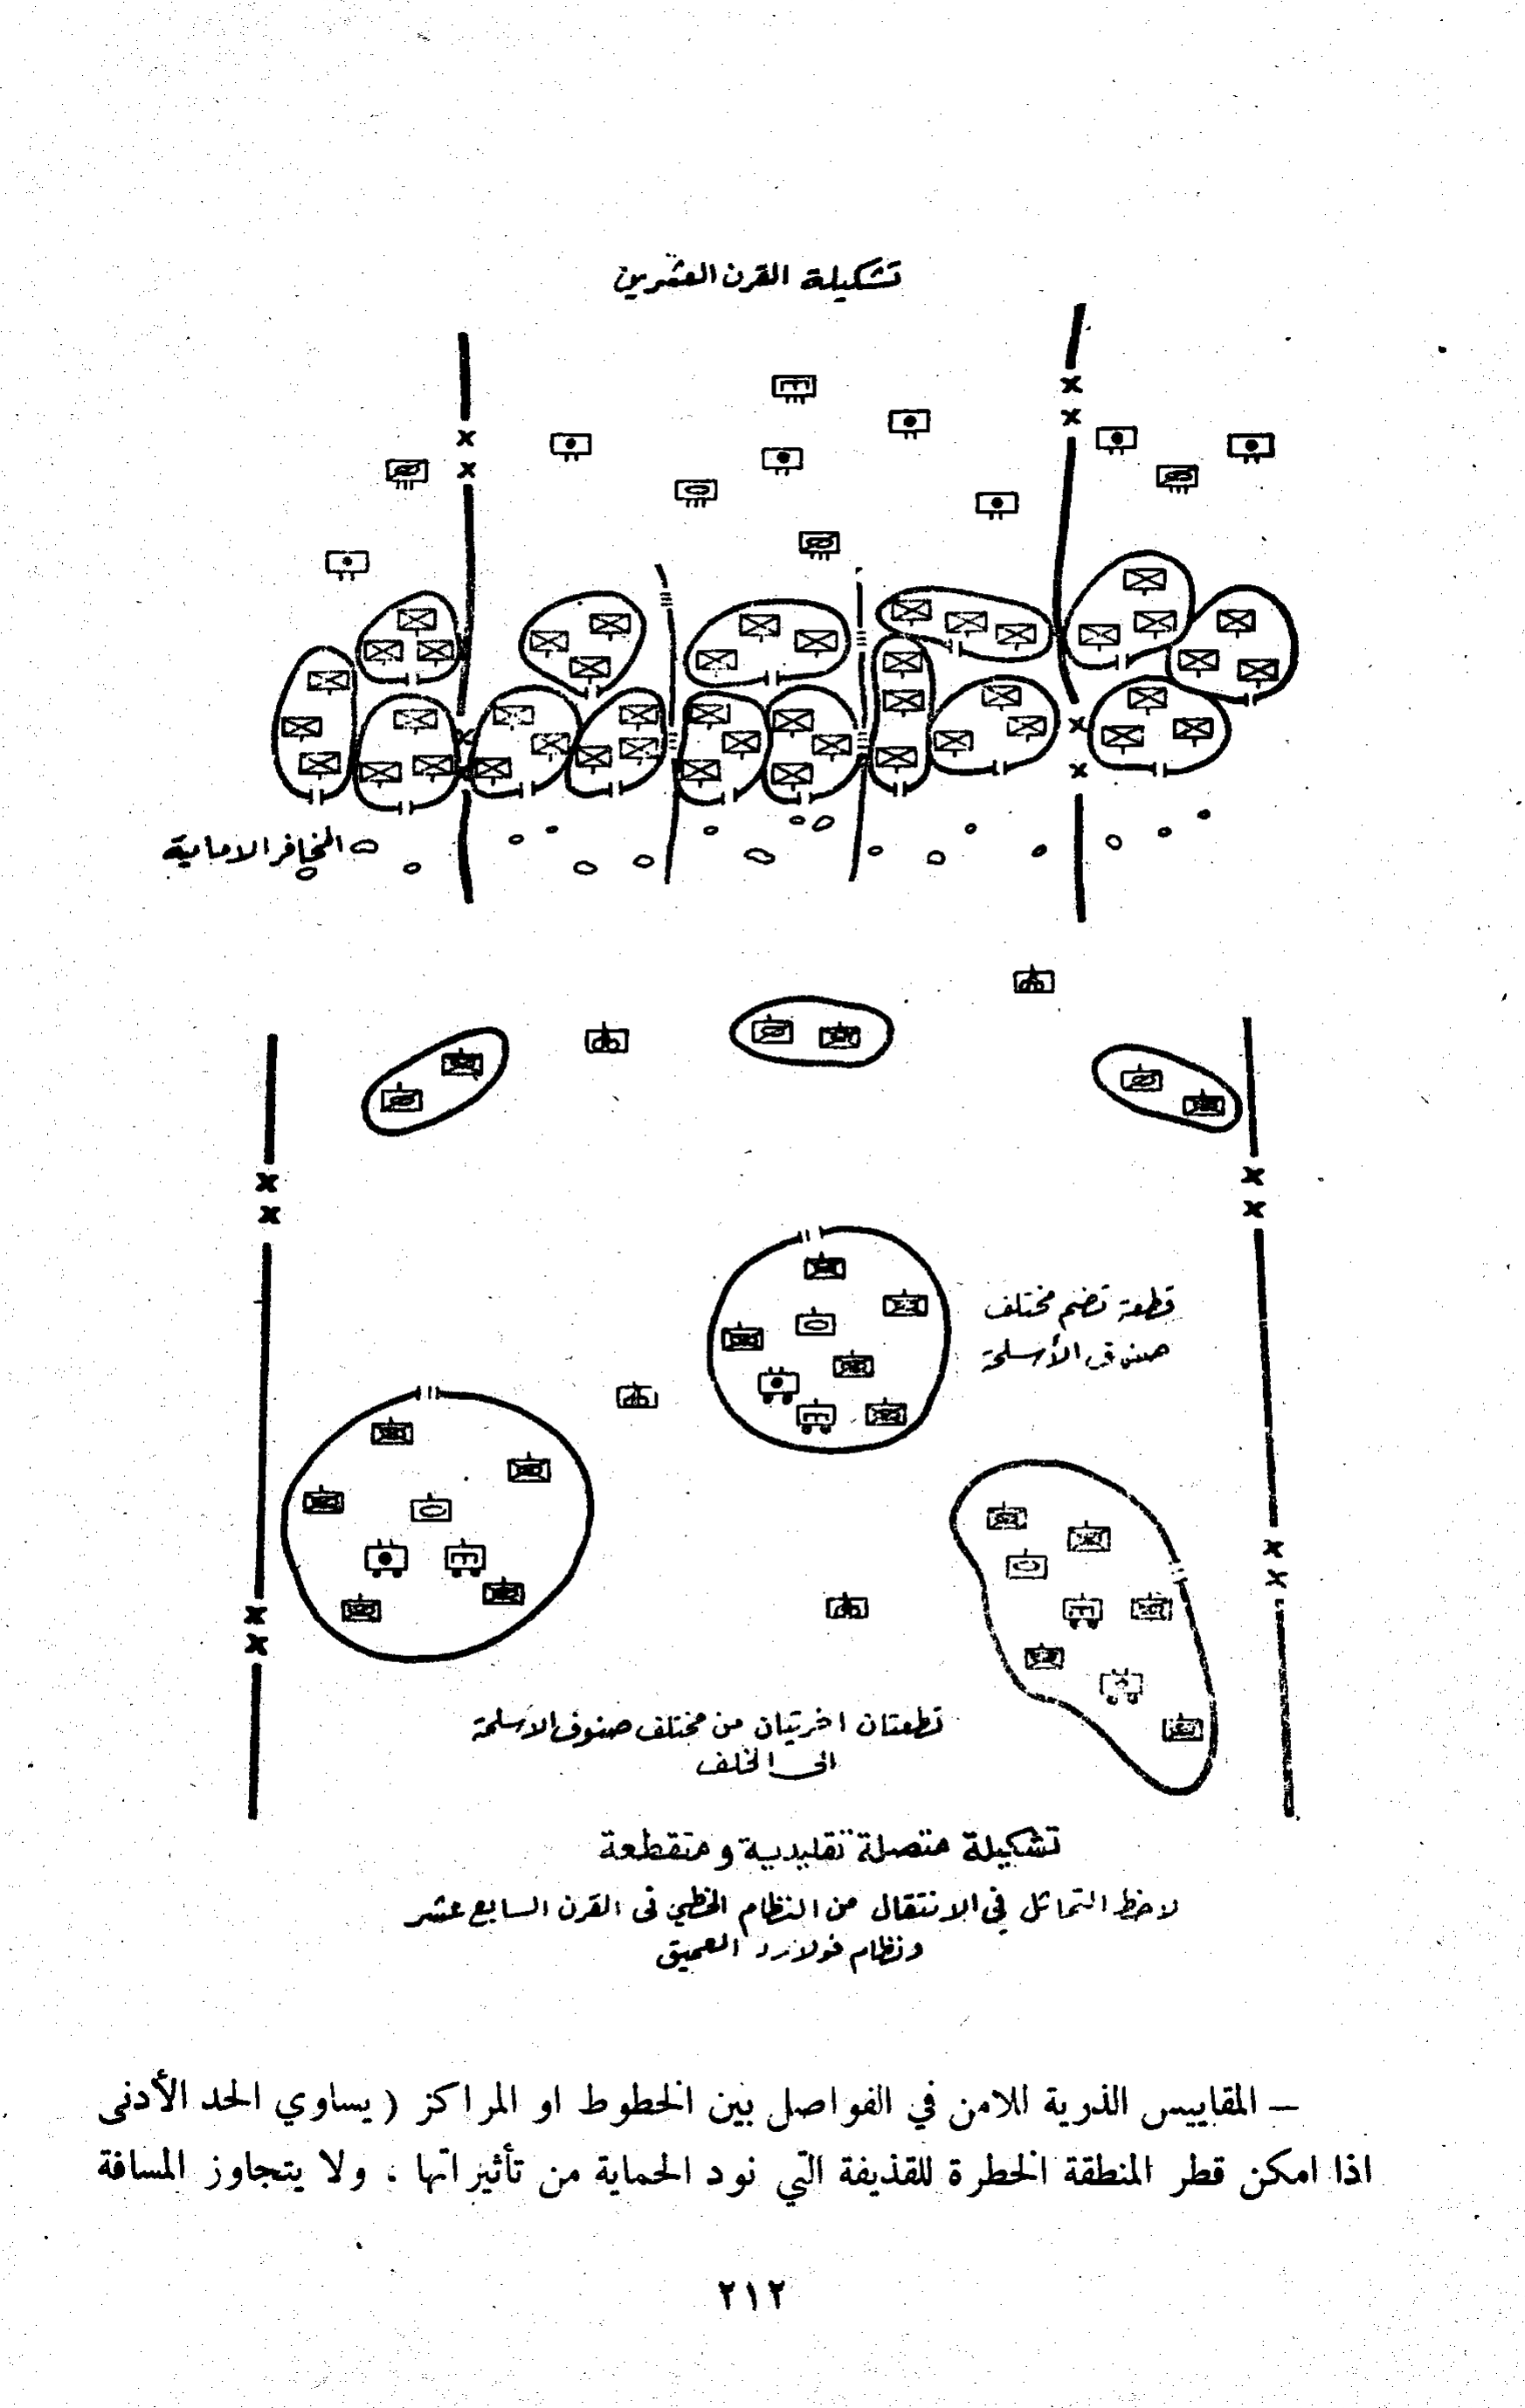 تشكيلة القرن العشرين
المخافر الامامية
قطعة تضم مختلف
صنوف الأسلحة
قطعتان اخرتيان من مختلف صنوف الاسلحة
الى الخلف
تشكيلة متصلة تقليدية ومتقطعة
لاحظ التماثل في الانتقال من النظام الخطي في القرن السابع عشر
ونظام فولارد العميق
– المقاييس الذرية للامن في الفواصل بين الخطوط او المراكز ( يساوي الحد الأدنى
اذا امكن قطر المنطقة الخطرة للقذيفة التي نود الحماية من تأثيراتها ، ولا يتجاوز المسافة
٢١٢